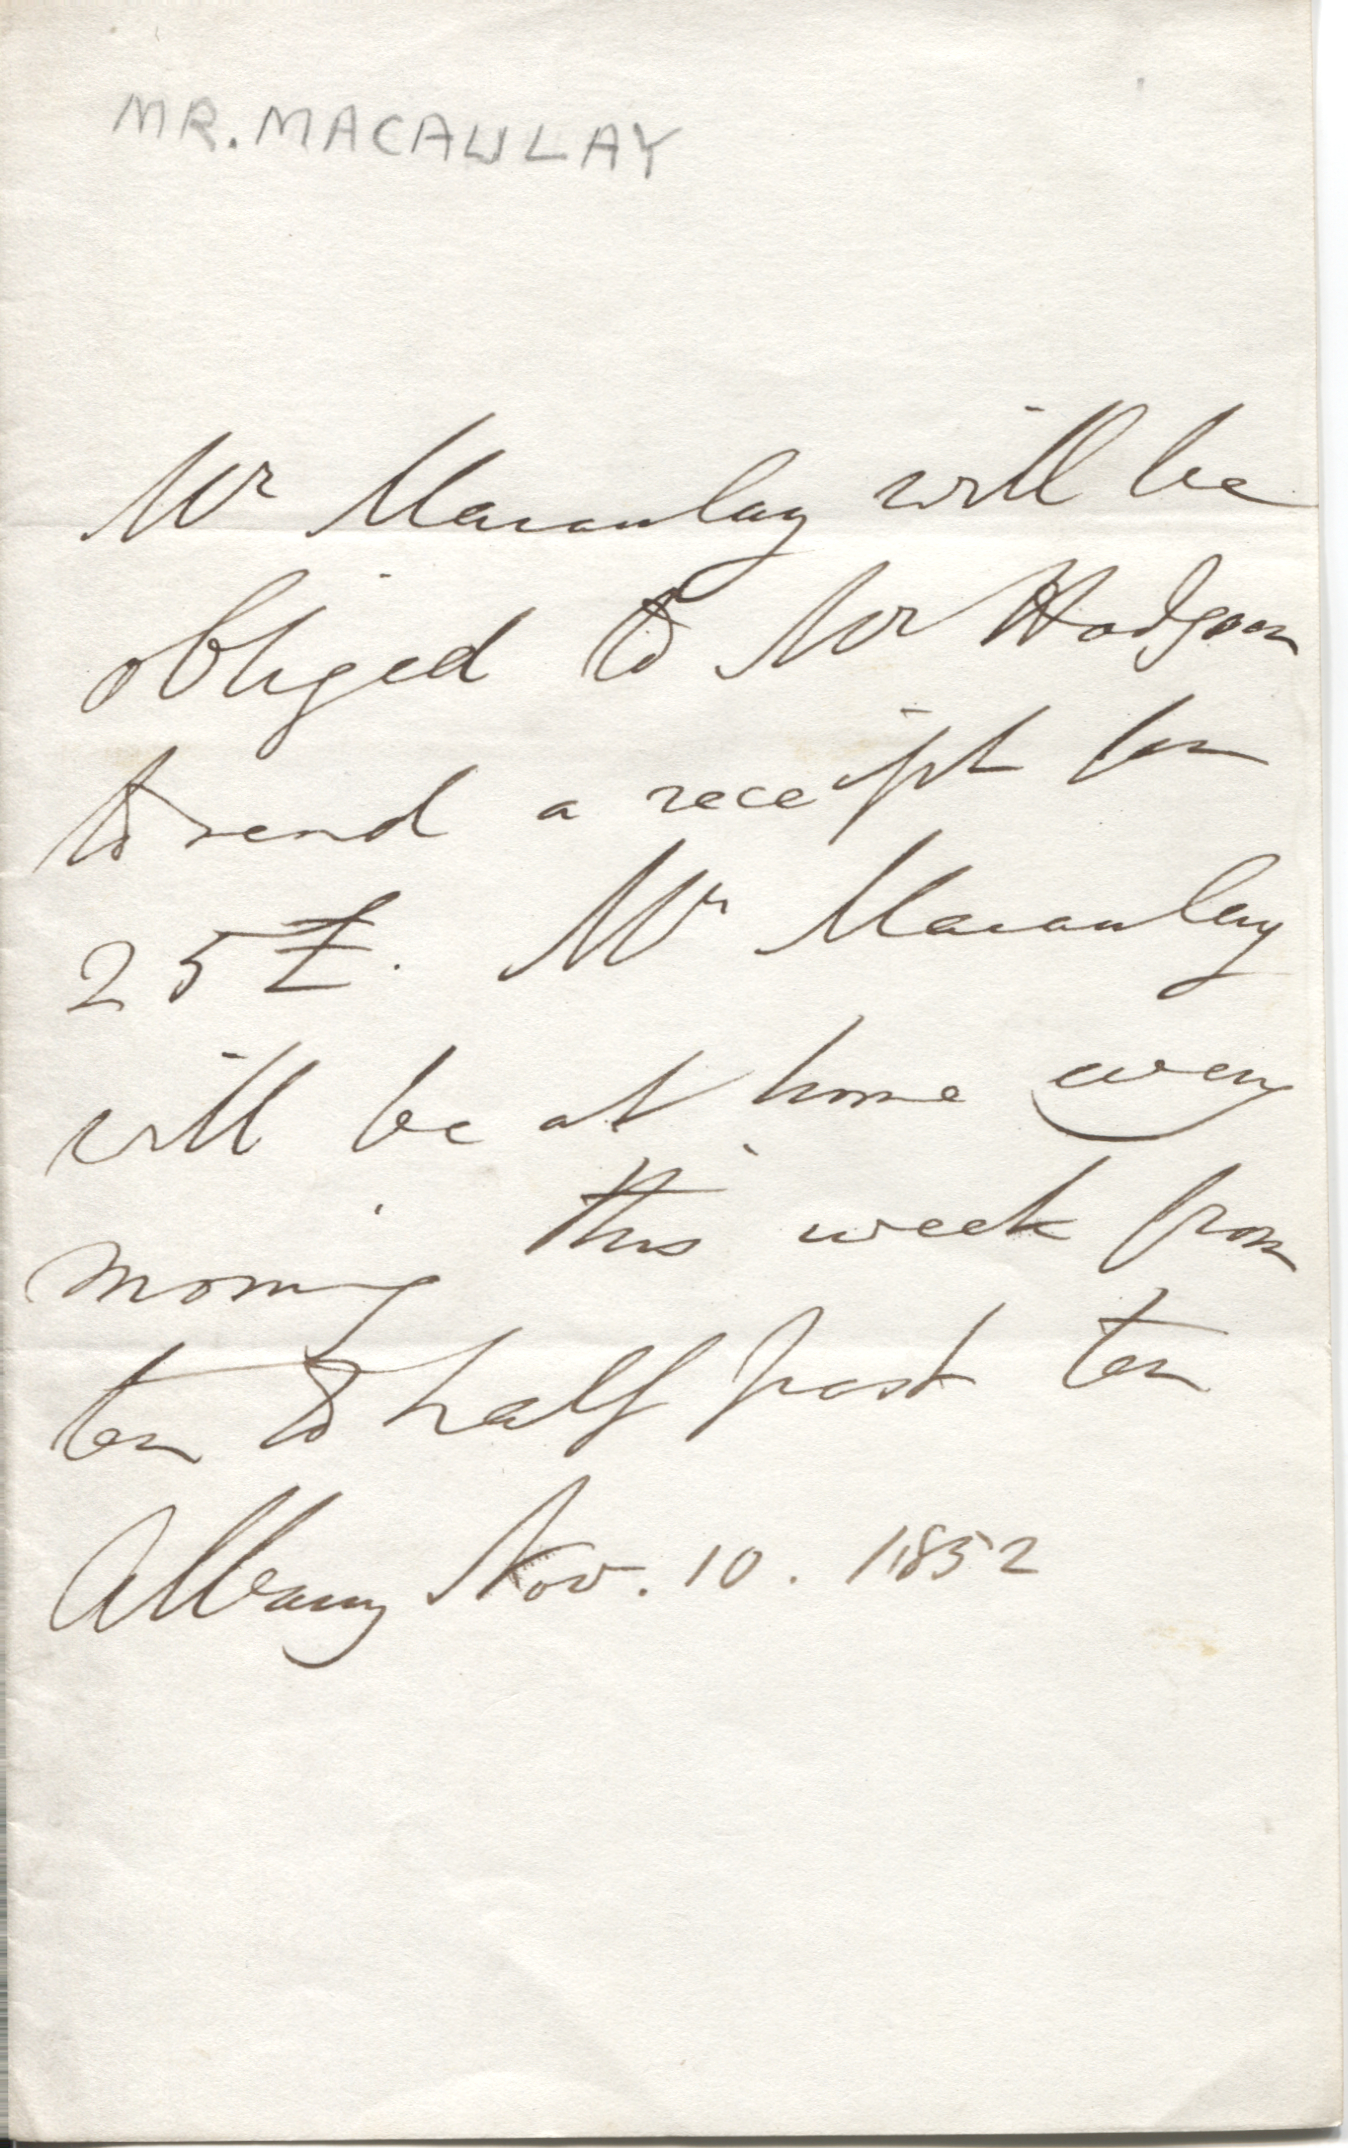 MR. MACAULAY
Mr Macaulay will be
obliged to Mr Hodgson
to send a receipt for
25£. Mr Macaulay
will be at home every
morning this week from
ten to half past ten
Albany Nov. 10. 1852